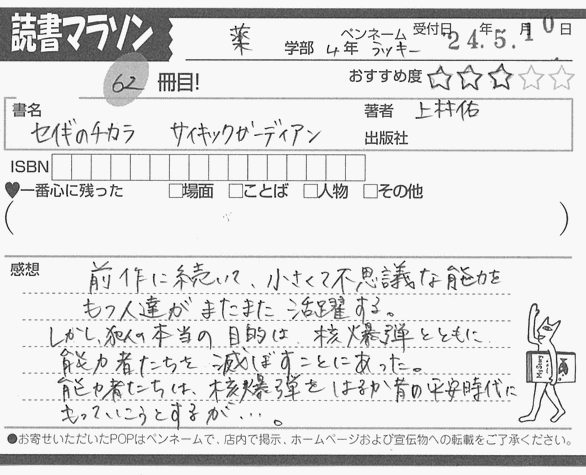 読書マラソン
薬 学部 4年 ペンネーム ラッキー 受付日 24年5.月10日
62 冊目! おすすめ度 ★★★☆☆
書名 セイギのチカラ サイキックガーディアン
著者 上村佑
出版社
ISBN
♥一番心に残った □場面 □ことば □人物 □その他
( )
感想
前作に続いて、小さくて不思議な能力を
もつ人達がまたまた活躍する。
しかし、犯人の本当の目的は、核爆弾とともに
能力者たちを滅ぼすことにあった。
能力者たちは、核爆弾をはるか昔の平安時代に
もっていこうとするが・・・。
●お寄せいただいたPOPはペンネームで、店内で掲示、ホームページおよび宣伝物への転載をご了承ください。